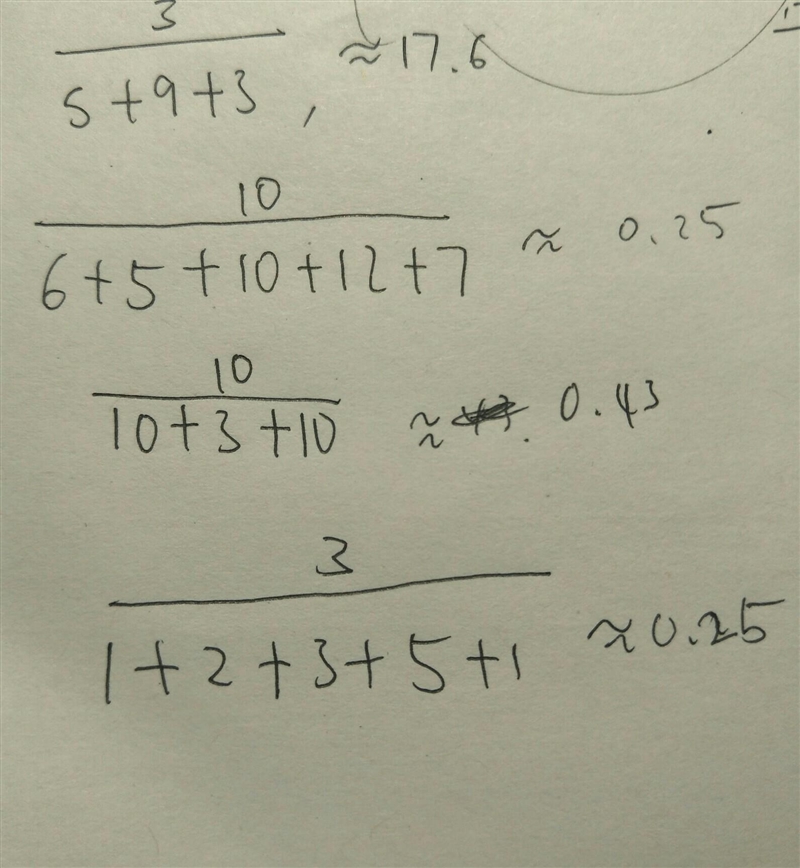 3
5+9+3, ≈17.6
10
6+5+10+12+7 ≈ 0.25
10
10+3+10 ≈ 0.43
3
1+2+3+5+1 ≈0.25